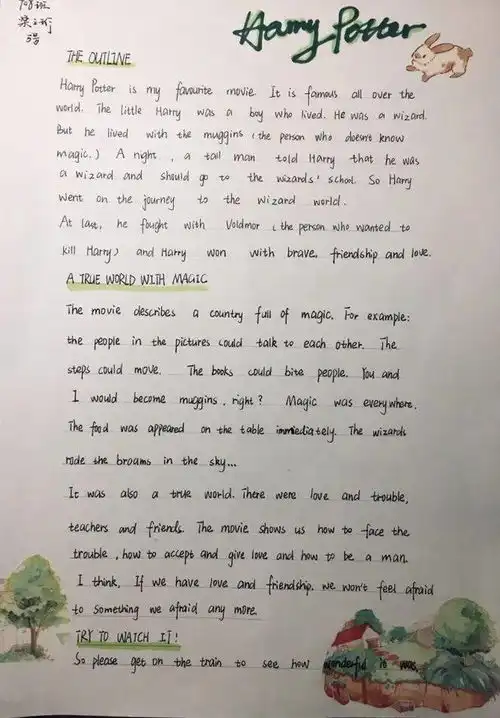 708班
梁
5号
Harry Potter
THE OUTLINE
Harry Potter is my favourite movie. It is famous all over the
world. The little Harry was a boy who lived. He was a wizard.
But he lived with the muggins (the person who doesn't know
magic.) A night, a tall man told Harry that he was
a wizard and should go to the wizards' school. So Harry
went on the journey to the wizard world.
At last, he fought with Voldmor (the person who wanted to
kill Harry) and Harry won with brave, friendship and love.
A TRUE WORLD WITH MAGIC
The movie describes a country full of magic. For example:
the people in the pictures could talk to each other. The
steps could move. The books could bite people. You and
I would become muggins, right? Magic was everywhere.
The food was appeared on the table immediately. The wizards
rode the broams in the sky...
It was also a true world. There were love and trouble,
teachers and friends. The movie shows us how to face the
trouble, how to accept and give love and how to be a man.
I think, If we have love and friendship, we won't feel afraid
to something we afraid any more.
TRY TO WATCH IT!
So please get on the train to see how wonderful it was